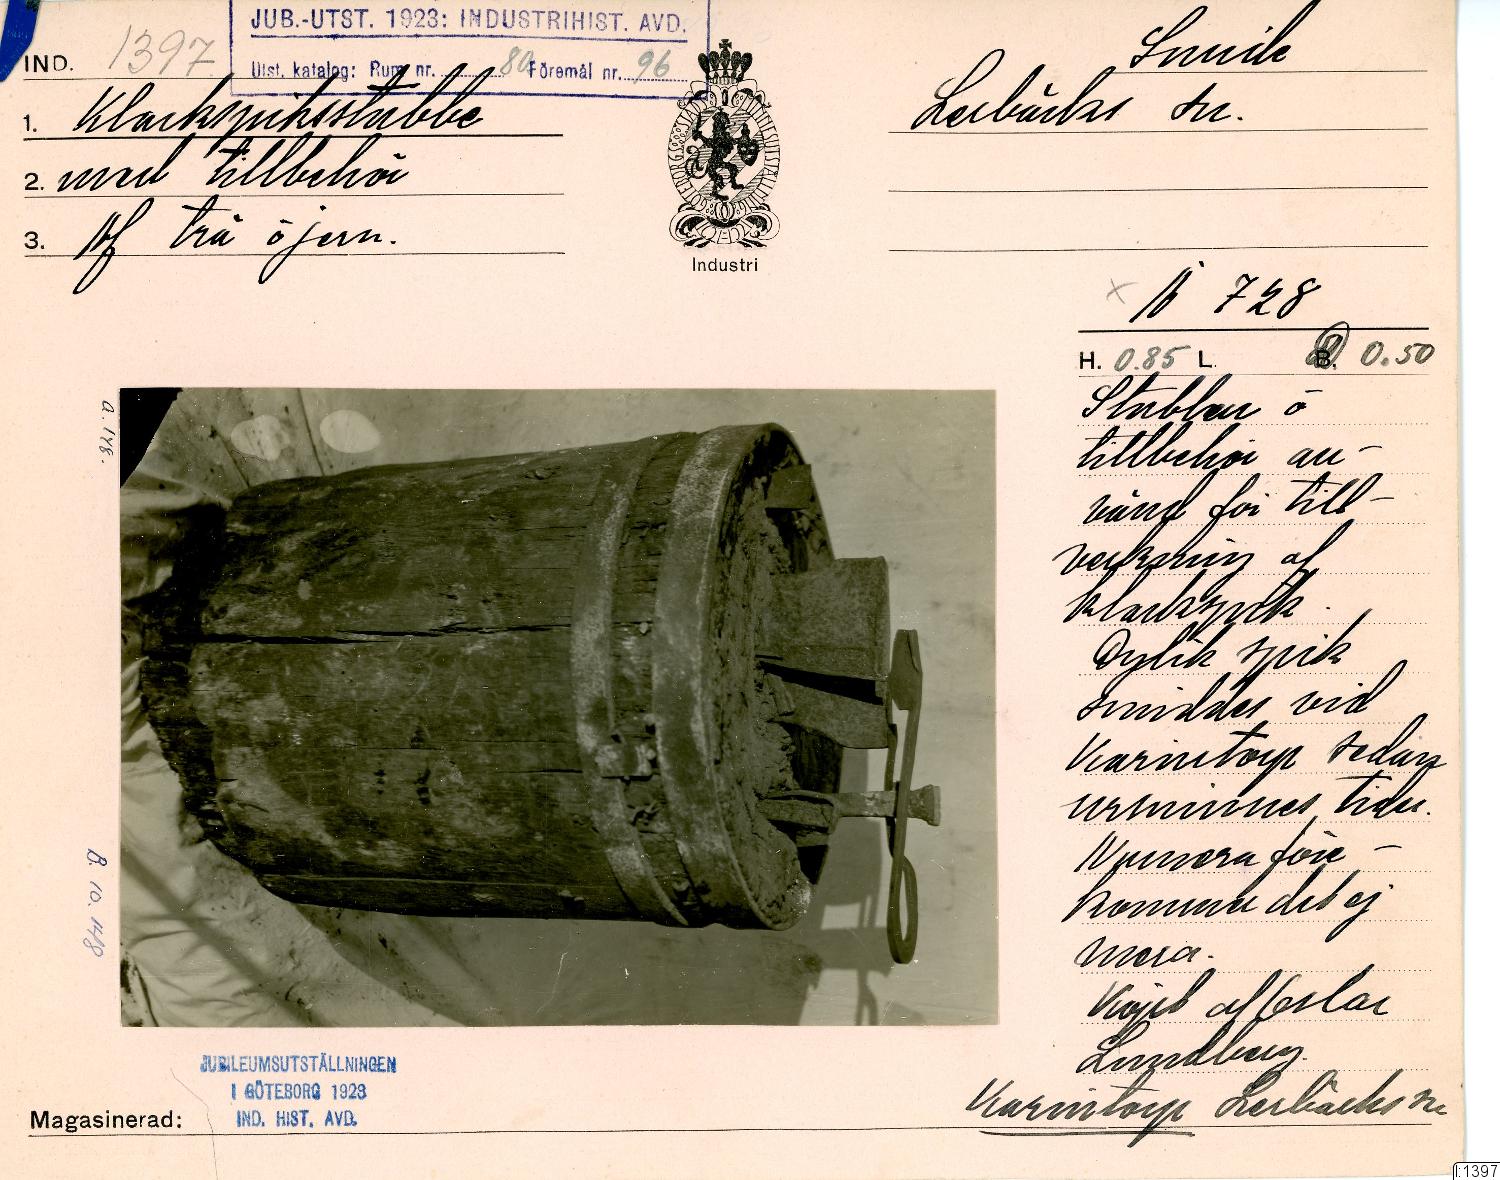 JUB.-UTST. 1923: INDUSTRIHIST. AVD.
Utst. katalog: Rum nr. 80 Föremål nr. 96
IND. 1397
1. Klackspiksstubbe
2. med tillbehör
3. Af trä o jern.
Industri
Smide
Lerbäcks sn.
x N 728
H. 0.85 L. B. 0.50
Stubben o
tillbehör an-
vänd för till-
verkning af
klackspik.
Dylik spik
smiddes vid
Karintorp sedan
urminnes tider.
Numera före-
kommer det ej
mera.
Köpt af Oskar
Lundberg.
Karintorp Lerbäcks sn
a. 178.
B. 10. 148
JUBILEUMSUTSTÄLLNINGEN
I GÖTEBORG 1923
IND. HIST. AVD.
Magasinerad:
I:1397